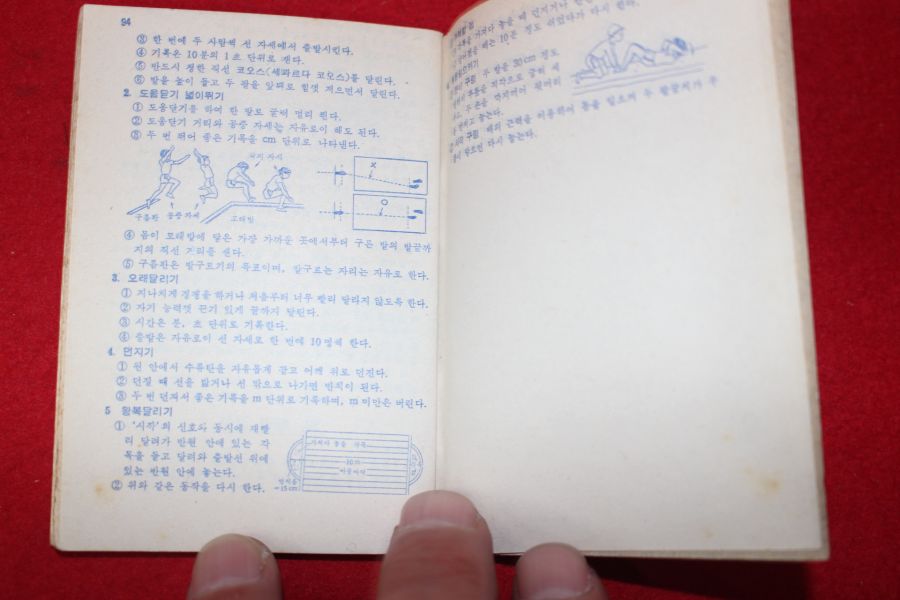 94
③ 한 번에 두 사람씩 선 자세에서 출발시킨다.
④ 기록은 10분의 1초 단위로 잰다.
⑤ 반드시 정한 직선 코오스(세퍼레이트 코오스)를 달린다.
⑥ 발을 높이 들고 두 팔을 앞뒤로 힘껏 저으면서 달린다.
2. 도움닫기 넓이뛰기
① 도움닫기를 하여 한 발로 굴러 멀리 뛴다.
② 도움닫기 거리와 공중 자세는 자유로이 해도 된다.
③ 두 번 뛰어 좋은 기록을 cm 단위로 나타낸다.
착지 자세
구름판 공중 자세 모래밭
④ 몸이 모래밭에 닿은 가장 가까운 곳에서부터 구른 발의 발끝까
지의 직선 거리를 잰다.
⑤ 구름판은 발구르기의 목표이며, 발구르는 자리는 자유로 한다.
3. 오래달리기
① 지나치게 경쟁을 하거나 처음부터 너무 빨리 달리지 않도록 한다.
② 자기 능력껏 끈기 있게 끝까지 달린다.
③ 시간은 분, 초 단위로 기록한다.
④ 출발은 자유로이 선 자세로 한 번에 10명쯤 한다.
4. 던지기
① 원 안에서 수류탄을 자유롭게 잡고 어깨 위로 던진다.
② 던질 때 선을 밟거나 선 밖으로 나가면 반칙이 된다.
③ 두 번 던져서 좋은 기록을 m 단위로 기록하며, m 미만은 버린다.
5 왕복달리기
① '시작'의 신호와 동시에 재빨
리 달려가 반원 안에 있는 각
목을 들고 달려와 출발선 위에
있는 반원 안에 놓는다.
② 위와 같은 동작을 다시 한다.
10m
반지름
=15cm
두 발을 30cm 정도
배의 근력을 이용하여 몸을 일으켜 두 팔꿈치가 무
릎에 닿으면 다시 눕는다.